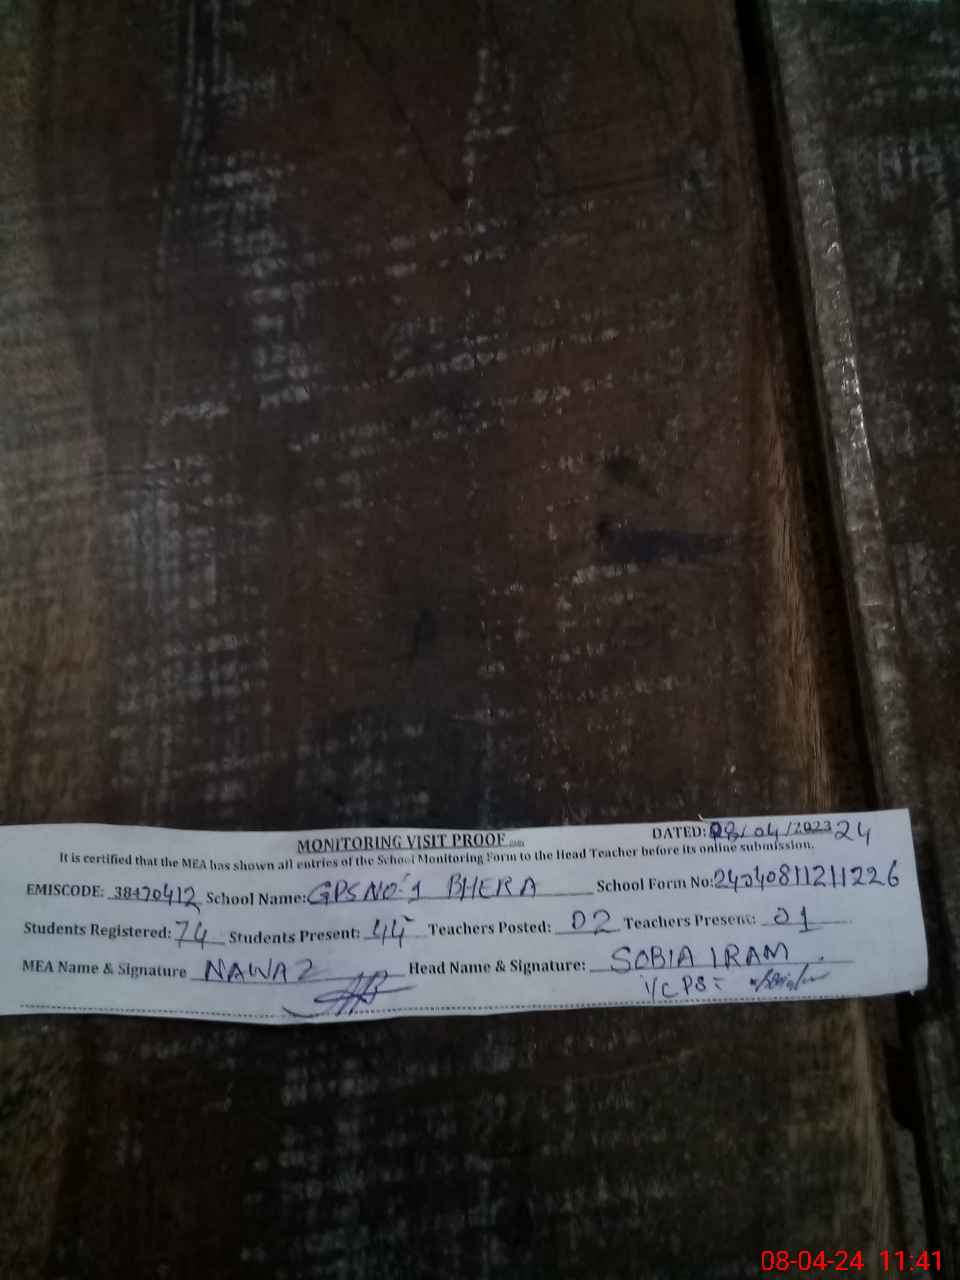 MONITORING VISIT PROOF
DATED: 08/04/2023 24
It is certified that the MEA has shown all entries of the School Monitoring Form to the Head Teacher before its online submission.
EMISCODE: 38470412 School Name: GPS NO-1 BHERA School Form No: 24040811211226
Students Registered: 74 Students Present: 44 Teachers Posted: 02 Teachers Present: 01
MEA Name & Signature NAWAZ Head Name & Signature: SOBIA IRAM
I/C PS
08-04-24 11:41